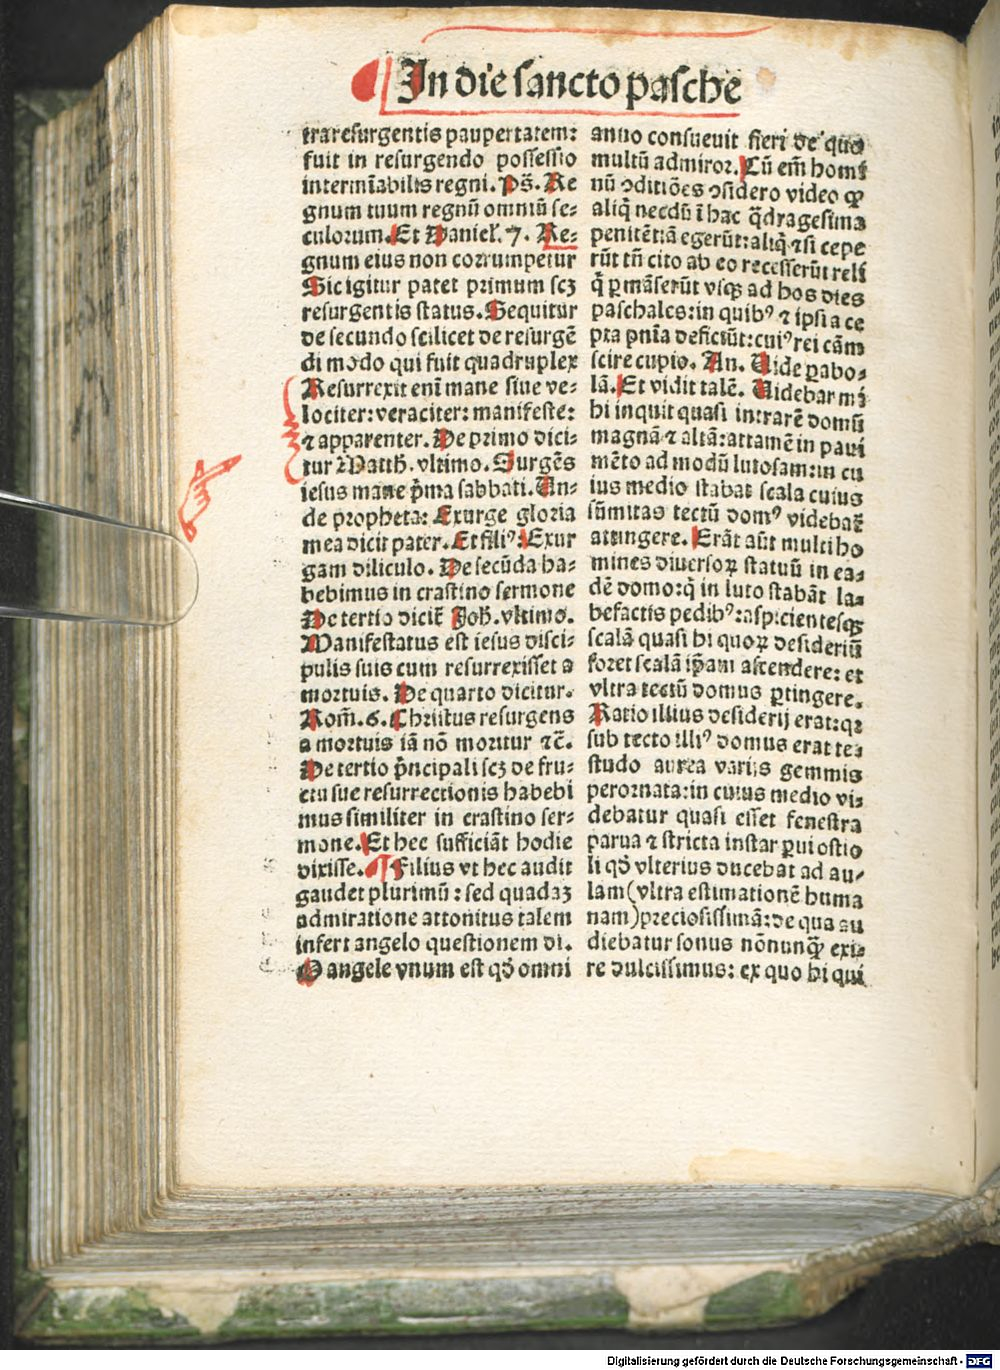 In die sancto pasche
trare surgentis paupertatem:
fuit in resurgendo possessio
interminabilis regni. Ps̃. Re
gnum tuum regnū omniū se⸗
culorum. Et Daniel̃. 7. Re⸗
gnum eius non corrumpetur
Sic igitur patet primum scꝫ
resurgentis status. Sequitur
de secundo scilicet de resurgē
di modo qui fuit quadruplex
Resurrexit eni᷒ mane siue ve⸗
lociter: veraciter: manifeste:
⁊ apparenter. De primo dici⸗
tur Matth. vltimo. Surgēs
iesus mane p̄ma sabbati. Un⸗
de propheta: Exurge gloria
mea dicit pater. Et filiꝰ: Exur
gam diliculo. De secūda ha⸗
bebimus in crastino sermone
De tertio dicit̃ Joh. vltimo.
Manifestatus est iesus disci⸗
pulis suis cum resurrexisset a
mortuis. De quarto dicitur.
Rom̃. 6. Christus resurgens
a mortuis iā nō moritur ⁊c̄.
De tertio p̄ncipali scꝫ de fru⸗
ctu sue resurrectionis habebi
mus similiter in crastino ser⸗
mone. Et hec sufficiāt hodie
dixisse. ¶ Filius vt hec audit
gaudet plurimū: sed quadaꝫ
admiratione attonitus talem
infert angelo questionem di.
O angele vnum est qđ omni
anno consueuit fieri de quo
multū admiror. Cū em̄ homi
nū ꝯditiōes ꝯsidero video ꝙ
aliq̄ necdū ī hac q̄dragesima
penitētiā egerūt: aliq̄ ⁊ si cepe
rūt tn̄ cito ab eo recesserūt reli
q̄ ꝑmāserūt vsqꝫ ad hos dies
paschales: in quibꝰ ⁊ ipsi a ce
pta pn̄ia deficiūt: cuiꝰ rei cām
scire cupio. An. Uide ꝑabo⸗
lā. Et vidit talē. Uidebar mi
hi inquit quasi intrarē domū
magnā ⁊ altā: attamē in paui
mēto ad modū lutosam: in cu
ius medio stabat scala cuius
sūmitas tectū domꝰ videbat̃
attingere. Erāt aūt multi ho
mines diuersoꝝ statuū in ea⸗
dē domo: q̄ in luto stabāt la⸗
befactis pedibꝰ: aspicientesqꝫ
scalā quasi hi quoꝝ desideriū
foret scalā ip̄am ascendere: et
vltra tectū domus ꝑtingere.
Ratio illius desiderij erat: qꝛ
sub tecto illiꝰ domus erat te⸗
studo aurea varijs gemmis
perornata: in cuius medio vi⸗
debatur quasi esset fenestra
parua ⁊ stricta instar ꝑui ostio
li qđ vlterius ducebat ad au⸗
lam (vltra estimationē huma
nam) preciosissimā: de qua au
diebatur sonus nōnunꝙ̄ exi⸗
re dulcissimus: ex quo hi qui
Digitalisierung gefördert durch die Deutsche Forschungsgemeinschaft - DFG